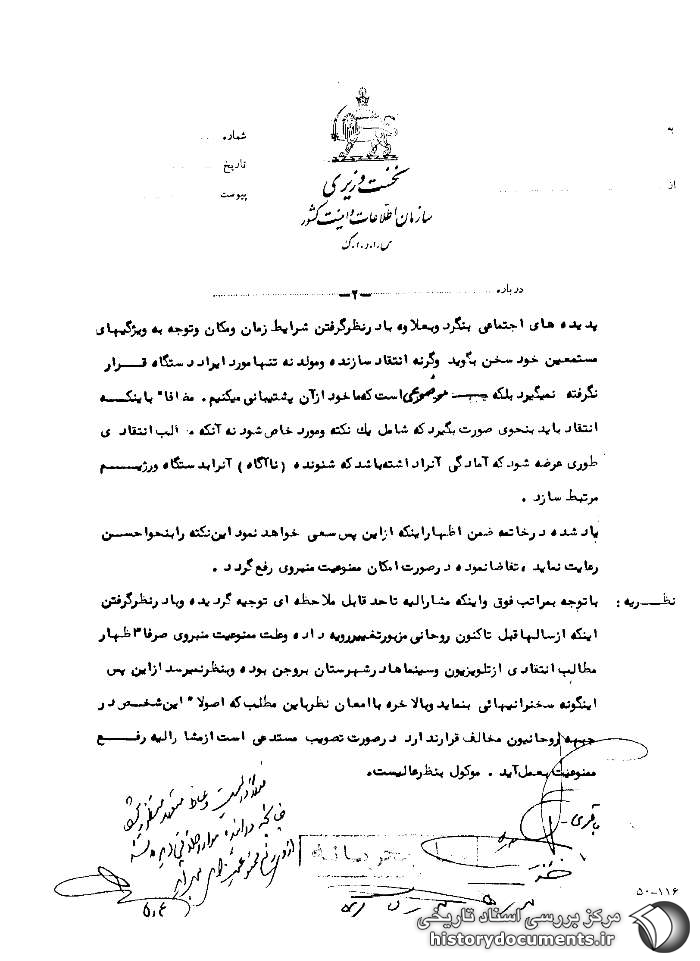 به
شماره
از
تاریخ
پیوست
نخست وزیری
سازمان اطلاعات و امنیت کشور
س.ا.و.ا.ک
درباره
-۲-
پدیده های اجتماعی بنگرد وبعلاوه بادرنظرگرفتن شرایط زمان ومکان وتوجه به ویژگیهای
مستمعین خود سخن بگوید وگرنه انتقاد سازنده ومولد نه تنهامورد ایراد دستگاه قرار
نگرفته نمیگیرد بلکه موضوعی است که ماخود ازآن پشتیبانی میکنیم . مضافا" باینکه
انتقاد باید بنحوی صورت بگیرد که شامل یك نکته ومورد خاص شود نه آنکه مطالب انتقادی
طوری عرضه شود که آمادگی آنراداشته باشد که شنونده (ناآگاه) آنرابدستگاه ورژیم
مرتبط سازد .
یادشده درخاتمه ضمن اظهاراینکه ازاین پس سعی خواهد نمود این نکته رابنحواحسن
رعایت نماید ، تقاضانموده درصورت امکان ممنوعیت منبروی رفع گردد .
نظریه : باتوجه بمراتب فوق واینکه مشارالیه تاحد قابل ملاحظه ای توجیه گردیده وبادرنظرگرفتن
اینکه ازسالهاقبل تاکنون روحانی مزبورتغییررویه داده وعلت ممنوعیت منبروی صرفا" اظهار
مطالب انتقادی ازتلویزیون وسینماهادرشهرستان بروجن بوده وبنظرنمیرسد ازاین پس
اینگونه سخنرانیهائی بنماید وبالاخره باامعان نظرباین مطلب که اصولا" این شخص در
جبهه روحانیون مخالف قرارندارد درصورت تصویب مستدعی است ازمشارالیه رفع
ممنوعیت بعمل آید . موکول بنظرعالیست.
باقری
محرمانه
۵۰-۱۱۶
مرکز بررسی اسناد تاریخی
historydocuments.ir